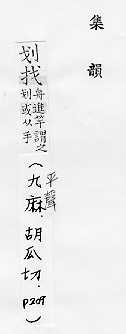 集韻
划找
舟進竿謂之
划或从手
(平聲
九麻.胡瓜切.
P209)